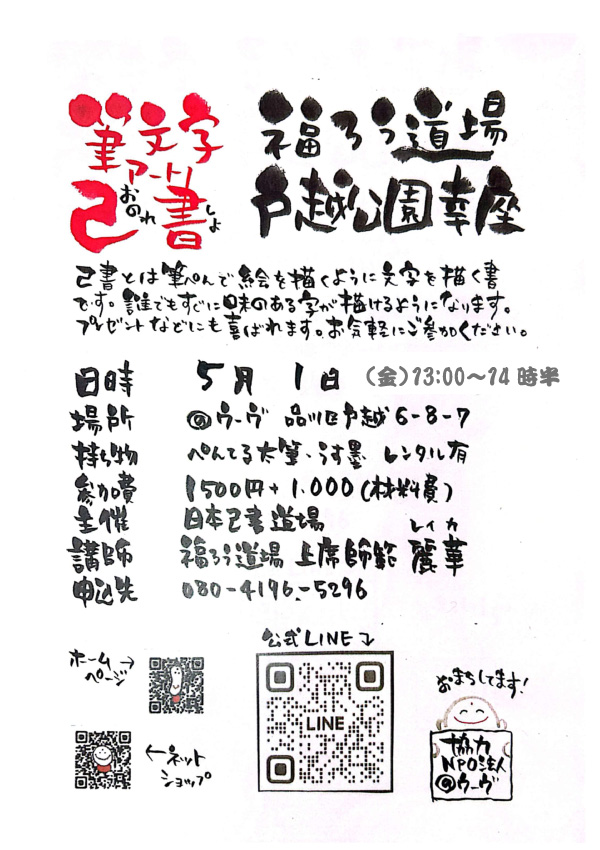 筆文字
アート!
己書
おのれ
しょ
福ろう道場
戸越公園幸座
己書とは筆ぺんで絵を描くように文字を描く書
です。誰でもすぐに味のある字が描けるようになります。
プレゼントなどにも喜ばれます。お気軽にご参加ください。
日時 5月 1日 (金)13:00〜14時半
場所 のウーヴ 品川区戸越6-8-7
持ち物 ぺんてる太筆・うす墨 レンタル有
参加費 1500円+1.000(材料費)
主催 日本己書道場
講師 福ろう道場 上席師範 麗華
レイカ
申込先 080-4196-5296
公式LINE
ホーム
ページ
LINE
ネット
ショップ
おまちしてます!
協力
NPO法人
のウーヴ